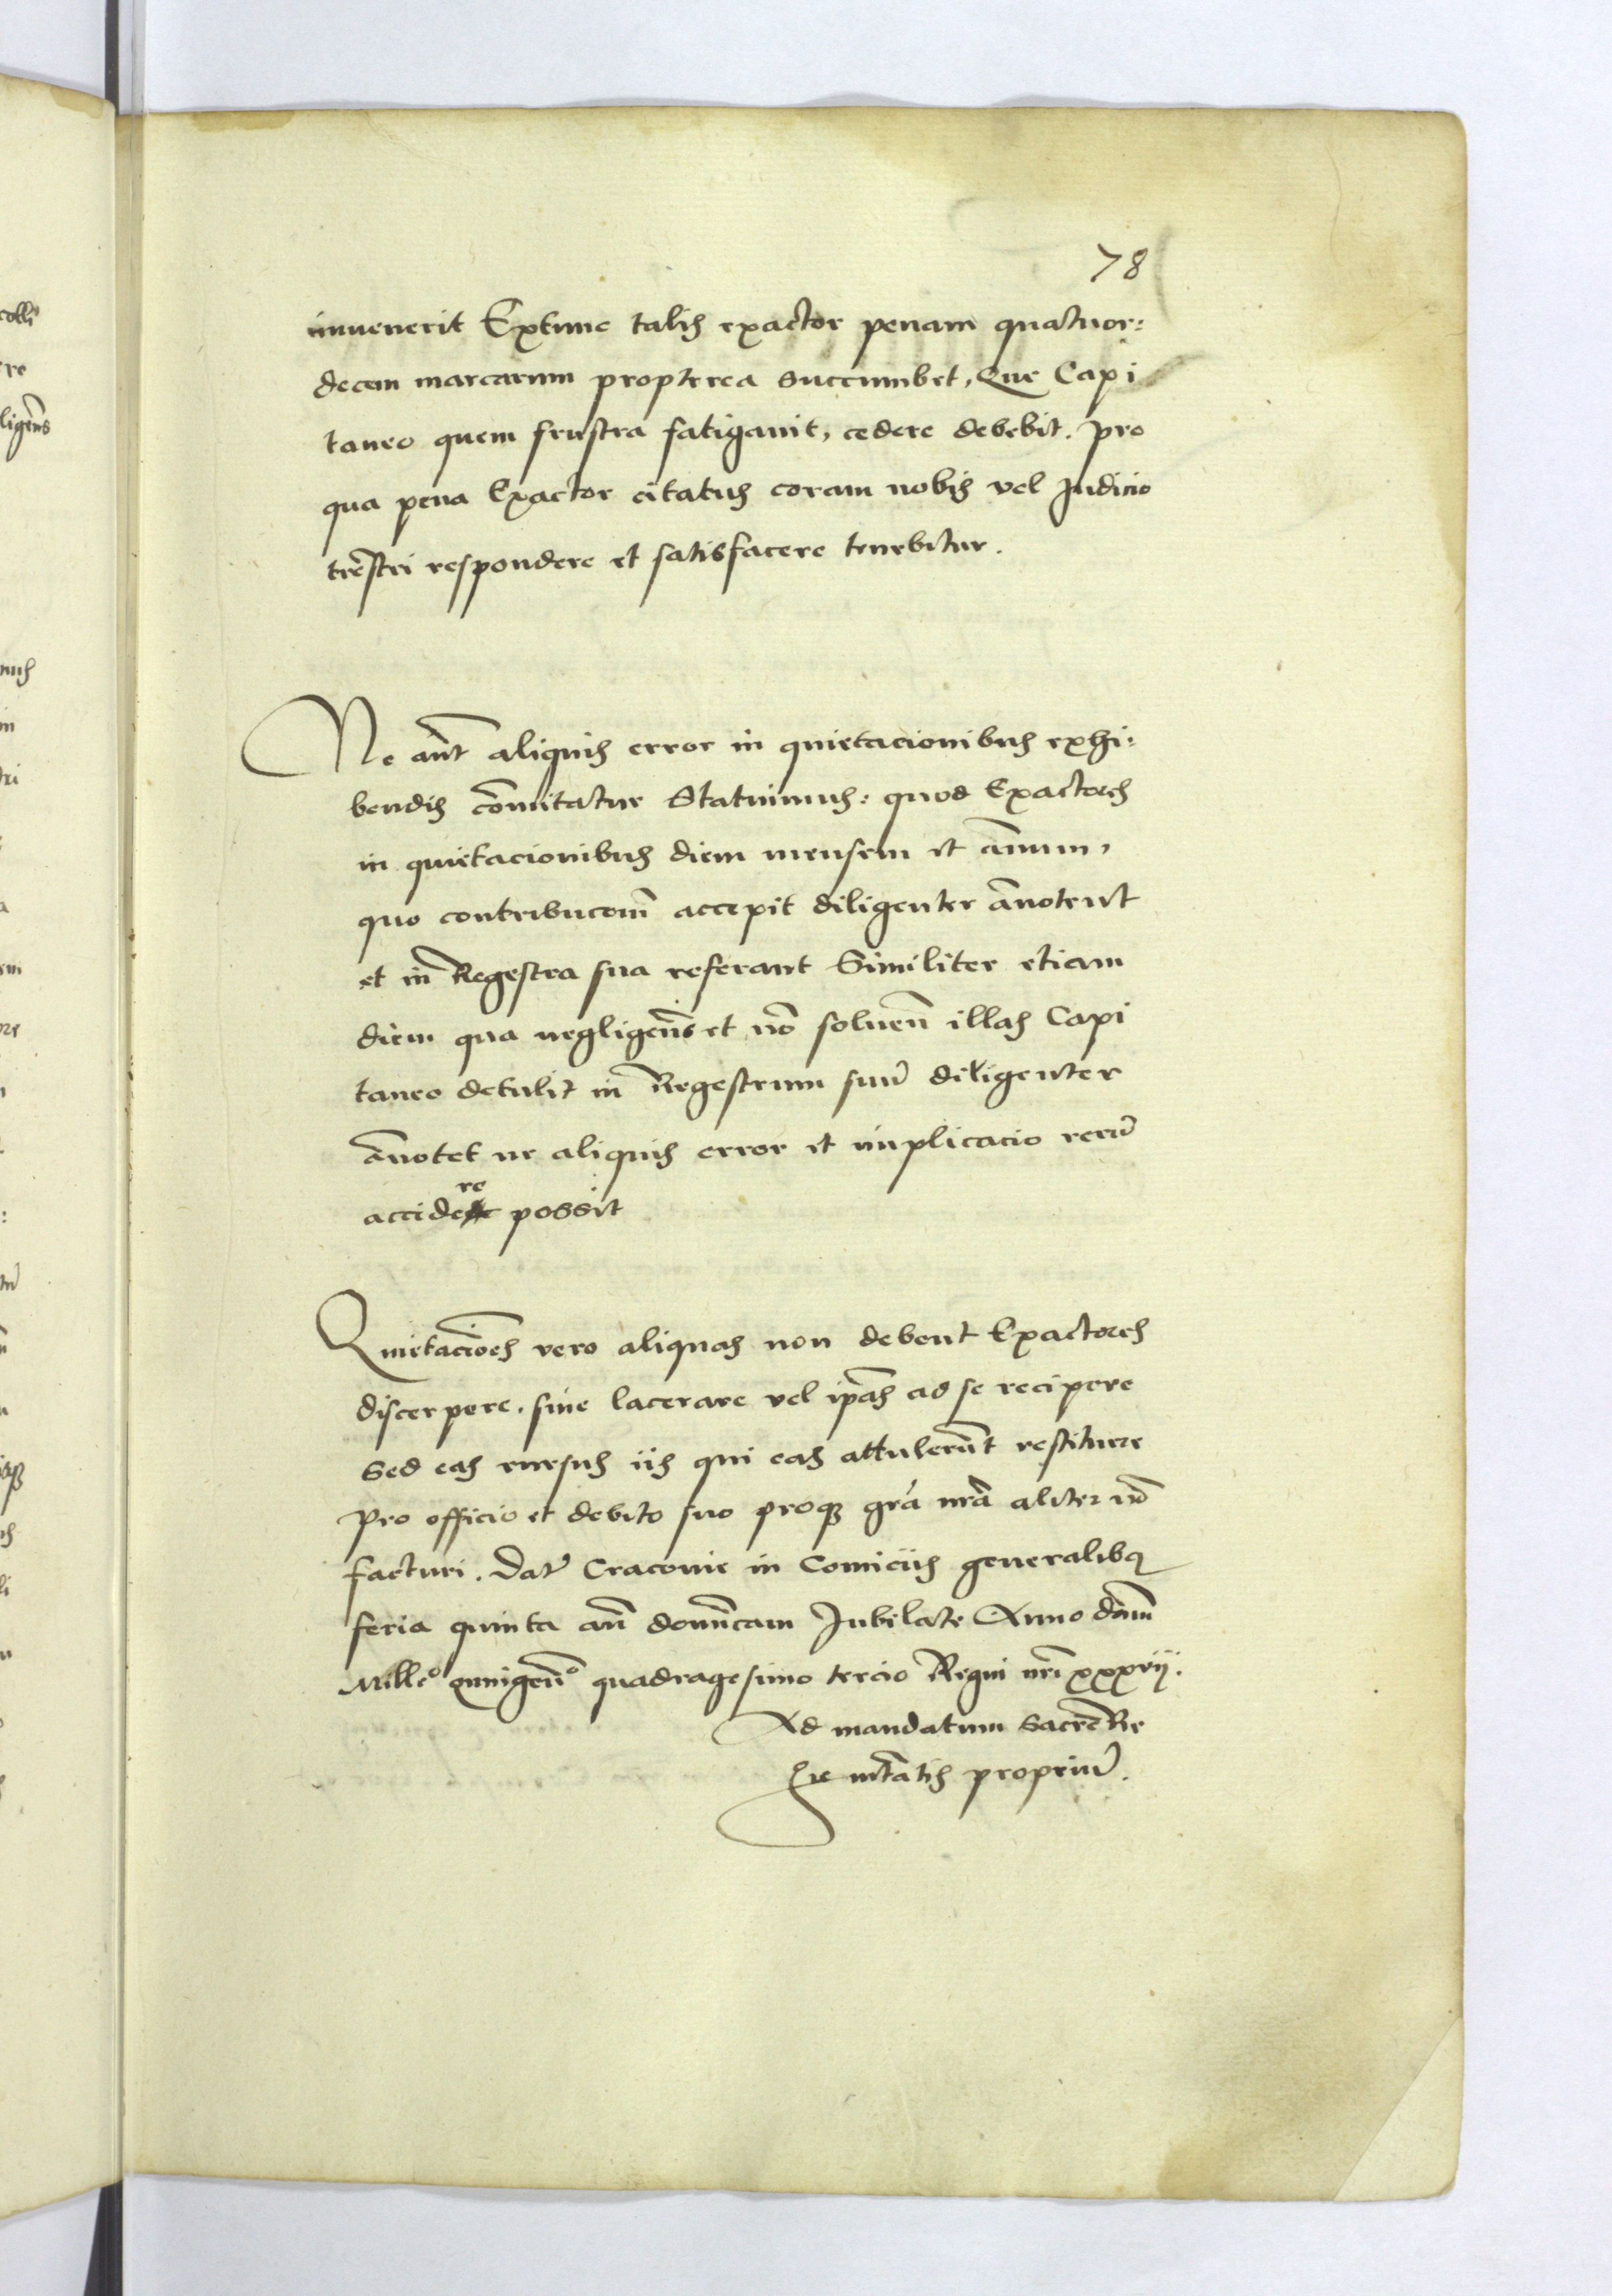 78
inuenerit Extunc talis exactor penam quatuor:
decem marcarum propterea succumbet, Que Capi
taneo quem frustra fatigauit, cedere debebit. pro
qua pena Exactor citatus coram nobis vel Iudicio
trẽstri respondere et satisfacere tenebitur.
Ne aũt aliquis error in quietacionibus exhi:
bendis cõmitatur Statuimus: quod Exactores
in quietacionibus diem mensem et ãnum,
quo contribucom̃ accepit diligenter ãnotent
et in Regestra sua referant Similiter etiam
diem qua negligeñs et nõ solueñ illas Capi
taneo detulit in Regestrum suũ diligenter
ãnotet ne aliquis error et implicacio rerũ
accidere possit
Quietaciões vero aliquas non debent Exactores
discerpere. siue lacerare vel ip̃as ad se recipere
sed eas rursus iis qui eas attulerũt restituere
pro officio et debito suo proq3 gr̃a nr̃a aliter nõ
facturi. Dat̃ Cracouie in Comiciis generalibq
feria quinta añ domĩcam Iubilate Anno dom̃
Mille° quingeñ° quadragesimo tercio Regni nr̃i xxxvij.
Ad mandatum sacrẽ Re
gie mt̃atis propriũ.